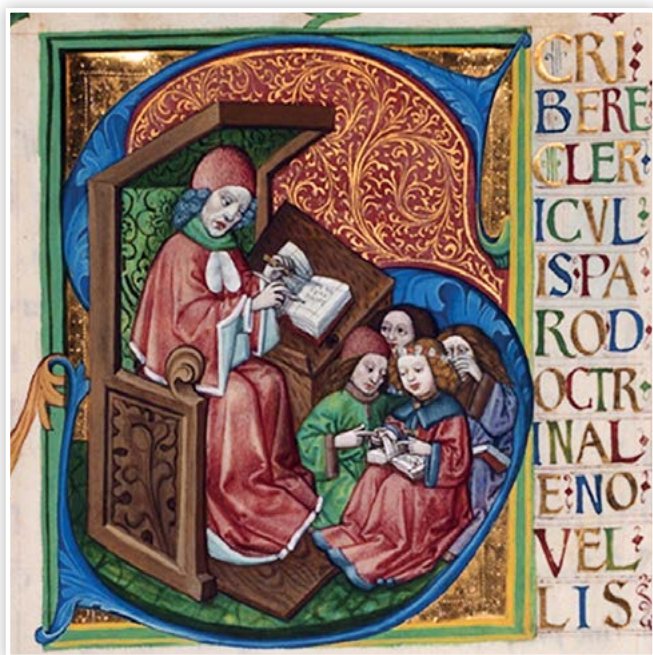 S
CRI
BERE
CLER
ICVL
IS·PA
ROD
OCTR
INAL
E·NO
VEL
LIS